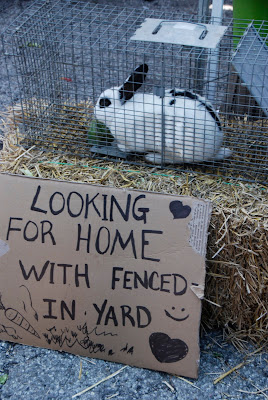 LOOKING
FOR HOME
WITH FENCED
IN YARD